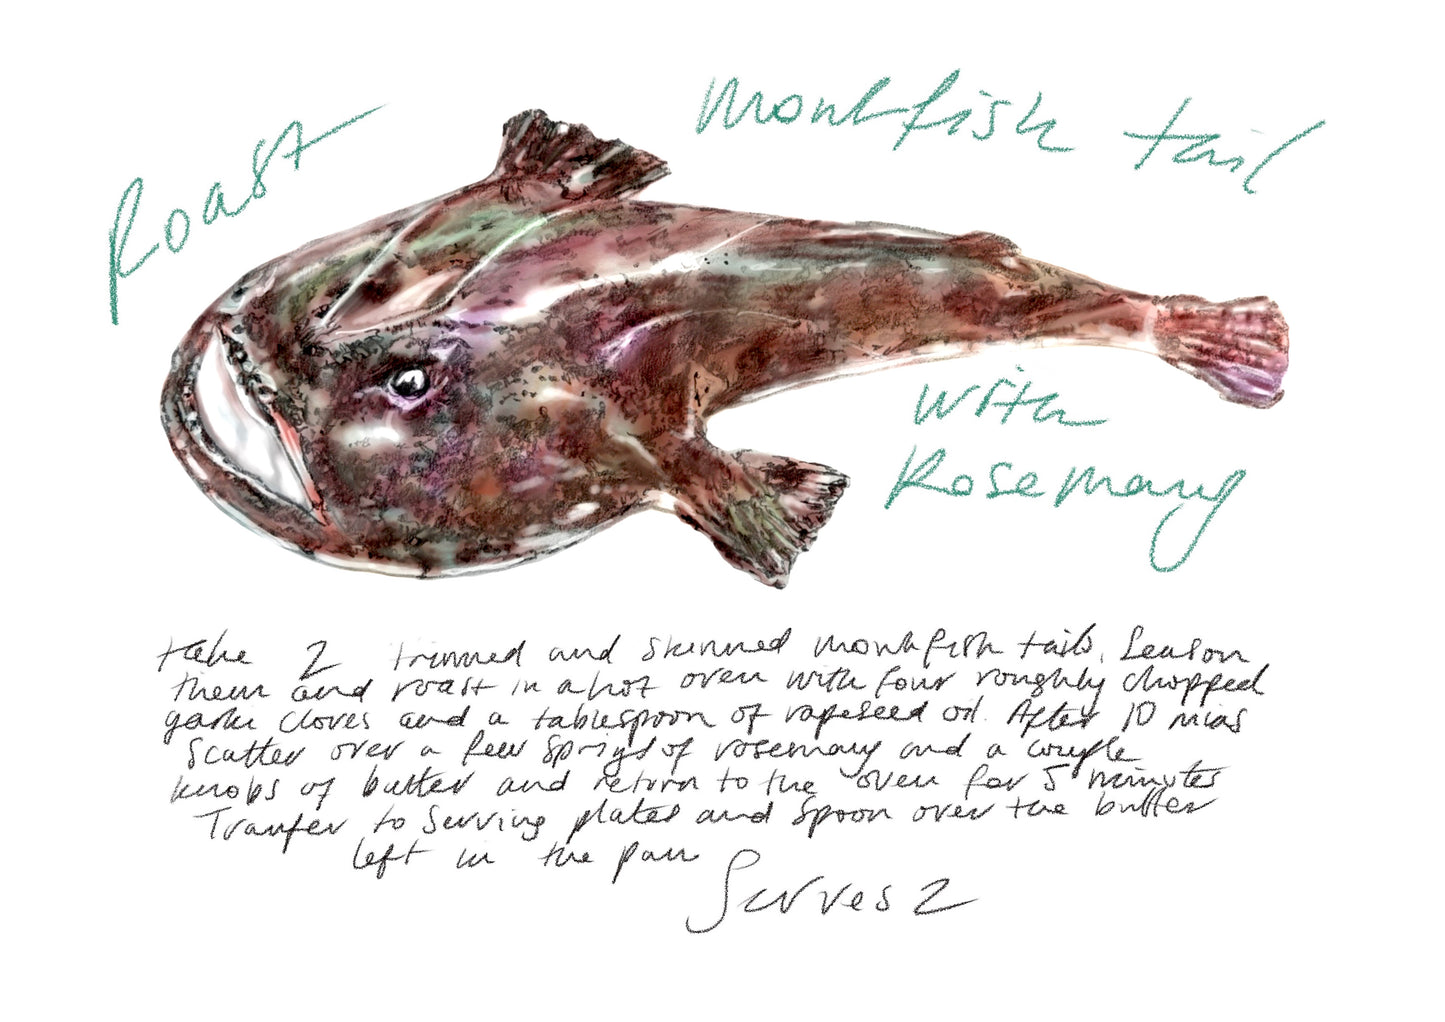 Roast
monkfish tail
with
Rosemary
take 2 trimmed and skinned monkfish tails. Season
them and roast in a hot oven with four roughly chopped
garlic cloves and a tablespoon of rapeseed oil. After 10 mins
scatter over a few sprigs of rosemary and a couple
knobs of butter and return to the oven for 5 minutes
Tranfer to serving plates and spoon over the butter
left in the pan
Serves 2